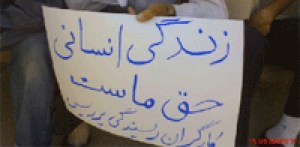 زندگی انسانی
حق ماست
کارگران ریسندگی پرریس